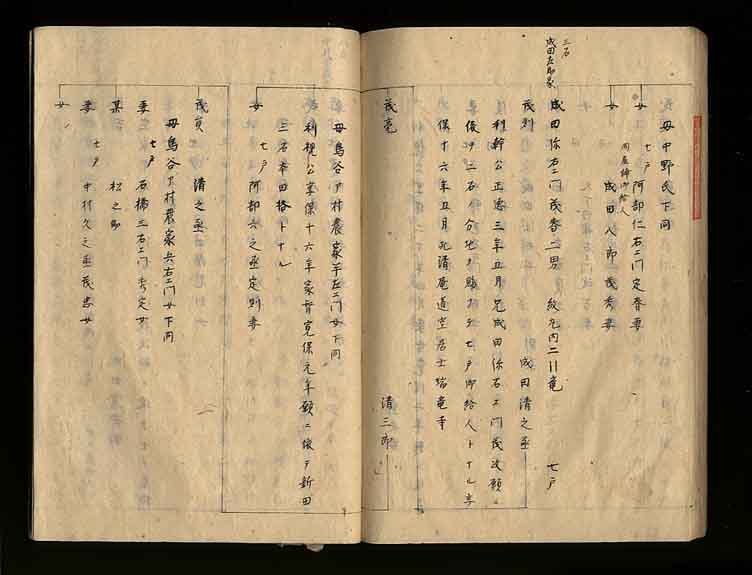 母中野氏下同
女 七戸 阿部仁右エ門定春妻
女 同居帰御給人 成田八郎茂秀妻
三石
成田左助家
成田弥右エ門茂香二男 紋丸内ニ川竜 七戸
茂利 成田清之丞
利幹公正徳三年五月兄成田弥右エ門茂政願ニ
依テ三石分地ヲ賜ハリ七戸御給人トナル享
保十六年五月死清庵道空居士瑞竜寺
茂亮 清三郎
母鳥谷下村農家半左エ門女下同
利視公享保十六年家督寛保元年願ニ依テ新田
三石本田格トナル
女 七戸 阿部六之丞定則妻
茂真 清之丞
母鳥谷下村農家兵右エ門女下同
妻 七戸 石橋三右エ門秀定女
某 松之助
妻 七戸 中村久之丞茂忠女
女